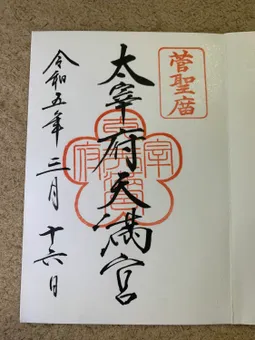 菅聖庿
太宰府天満宮
令和五年三月十六日